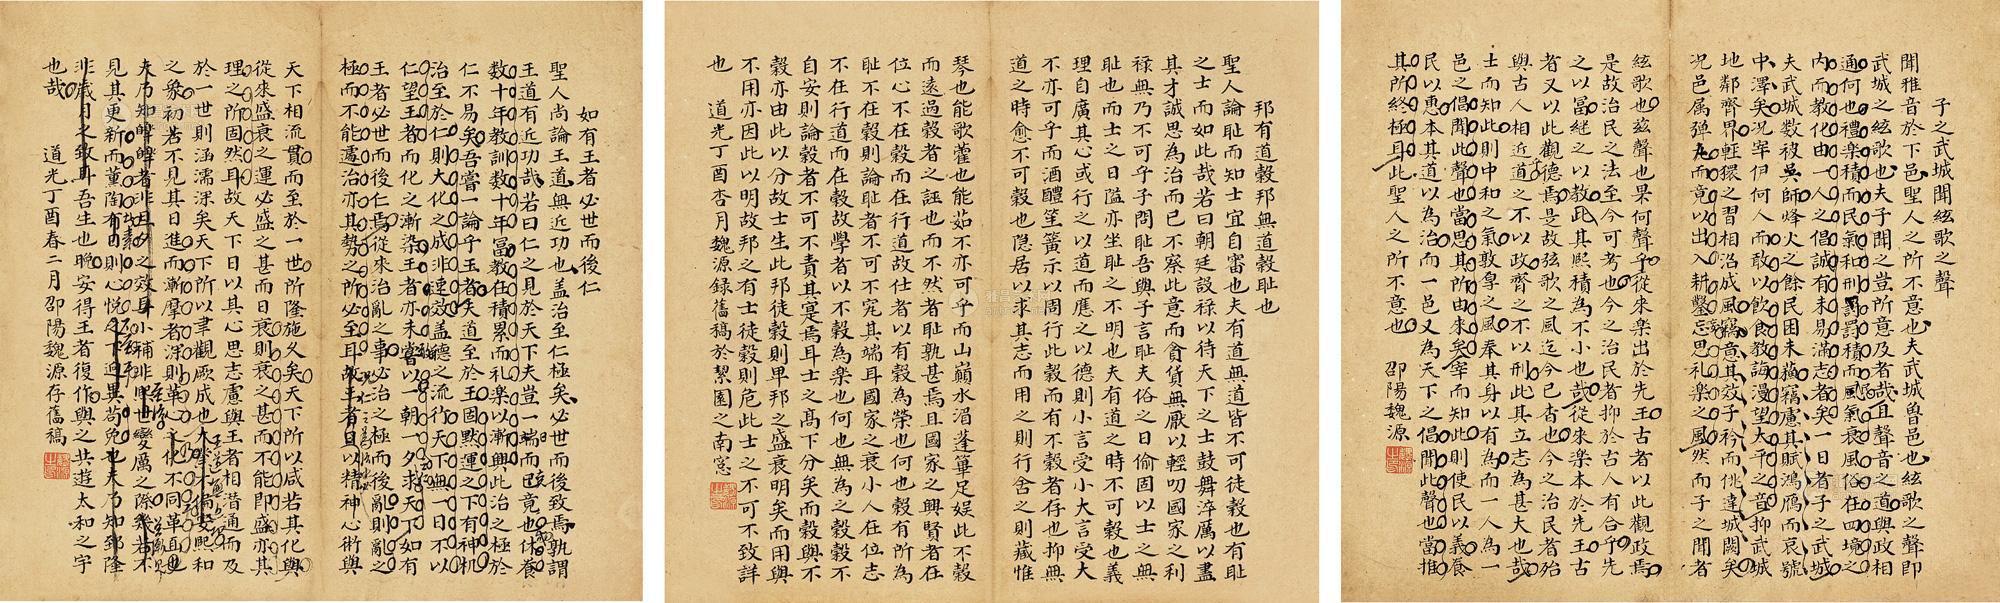 子之武城聞絃歌之聲
聞雅音於下邑聖人之所不意也夫武城魯邑也絃歌之聲即
武城之絃歌也夫子聞之豈所意及者哉且聲音之道與政相
通何也禮樂積而民氣和刑罰積而風氣衰風俗在四境之
內而教化由一人之倡誠有未易滿志者矣一日者子之武城
夫武城数被吳師烽火之餘民困未竊慮其賦鴻雁而哀號
中澤矣况宰伊何人而敢以飲食教誨漫望太平之音抑武城
地鄰齊界輕猥之習相沿成風竊意其效子衿而佻達城闕矣
况邑属彈丸而竟以出入耕鑿忘思礼樂之風然而子之聞者
絃歌也茲聲也果何聲乎從來楽出於先王古者以此觀政焉
是故治民之法至今可考也今之治民者抑於古人有合乎先
之以富継之以教此其熙積為不小也哉從來楽本於先王古
者又以此觀德焉是故弦歌之風迄今已杳也今之治民者殆
與古人相近道之不以政齊之不以刑此其立志為甚大也哉
士而知此則中和之氣敦皇之風奉其身以有為而一人為一
邑之倡聞此聲也當思其所由來矣宰而知此則使民以義養
民以惠本其道以為治而一邑又為天下之倡聞此聲也當推
其所終極耳此聖人之所不意也 邵陽魏源
邦有道穀邦無道穀耻也
聖人論耻而知士宜自審也夫有道無道皆不可徒穀也有耻
之士而如此哉若曰朝廷設祿以待天下之士鼓舞淬厲以盡
其才誠思為治而已不察此意而貪貨無厭以輕叨國家之利
祿無乃不可乎子問耻吾與子言耻夫俗之日偷固以士之無
耻也而士之日隘亦坐耻之不明也夫有道之時不可穀也義
理自廣其心或行之以道而應之以德則小言受小大言受大
不亦可乎而酒醴笙簧示以周行此穀而有不穀者存也抑無
道之時愈不可穀也隐居以求其志而用之則行舍之則藏惟
琴也能歌藿也能茹不亦可乎而山巔水湄蓬蓽足娱此不穀
而遠過穀者之誣也而不然者耻孰甚焉且國家之興賢者在
位心不在穀而在行道故仕者以有穀為榮也何也穀有所為
耻不在穀則論耻者不可不究其端耳國家之衰小人在位志
不在行道而在穀故學者以不穀為楽也何也無為之穀穀不
自安則論穀者不可不責其寔焉耳士之髙下分矣而穀與不
穀亦由此以分故士生此邦徒穀則卑邦之盛衰明矣而用與
不用亦因此以明故邦之有士徒穀則危此士之不可不致詳
也 道光丁酉杏月魏源錄舊稿於絜園之南窓
如有王者必世而後仁
聖人尚論王道無近功也盖治至仁極矣必世而後致焉孰謂
王道有近功哉若曰仁之見於天下夫豈一端而已竟也休養
数十年教訓数十年冨教在積累而礼楽以漸興此治之極於
仁不易矣吾嘗一論乎王者矣天道至於王固黙運之下有神机
治至於仁則大化之成非速效盖德之流行天下無一日不以
仁望王者而化之漸染王者亦未嘗以一朝一夕求天下如有
王者必世而後仁焉從來治亂之事必治之極而後亂則亂之
極而不能遽治亦其勢之所必至耳故王者日以精神心術與
天下相流貫而至於一世所隆施久矣天下所以咸若其化與
從來盛衰之運必盛之甚而日衰則衰之甚而不能即盛亦其
理之所固然耳故天下日以其心思志慮與王者相潜通而及
於一世則涵濡深矣天下所以聿觀厥成也大
之象初若不見其日進而漸摩者深則革心之化不同革面也
夫乃知皥皥者非旦夕之效耳小補非世變厲之際幾若不
見其更新而薰陶有由則心悅之下迥異苟免也夫乃知郅隆
非歲月之效耳吾生也晚安得王者復作與之共遊太和之宇
也哉 道光丁酉春二月邵陽魏源存舊稿